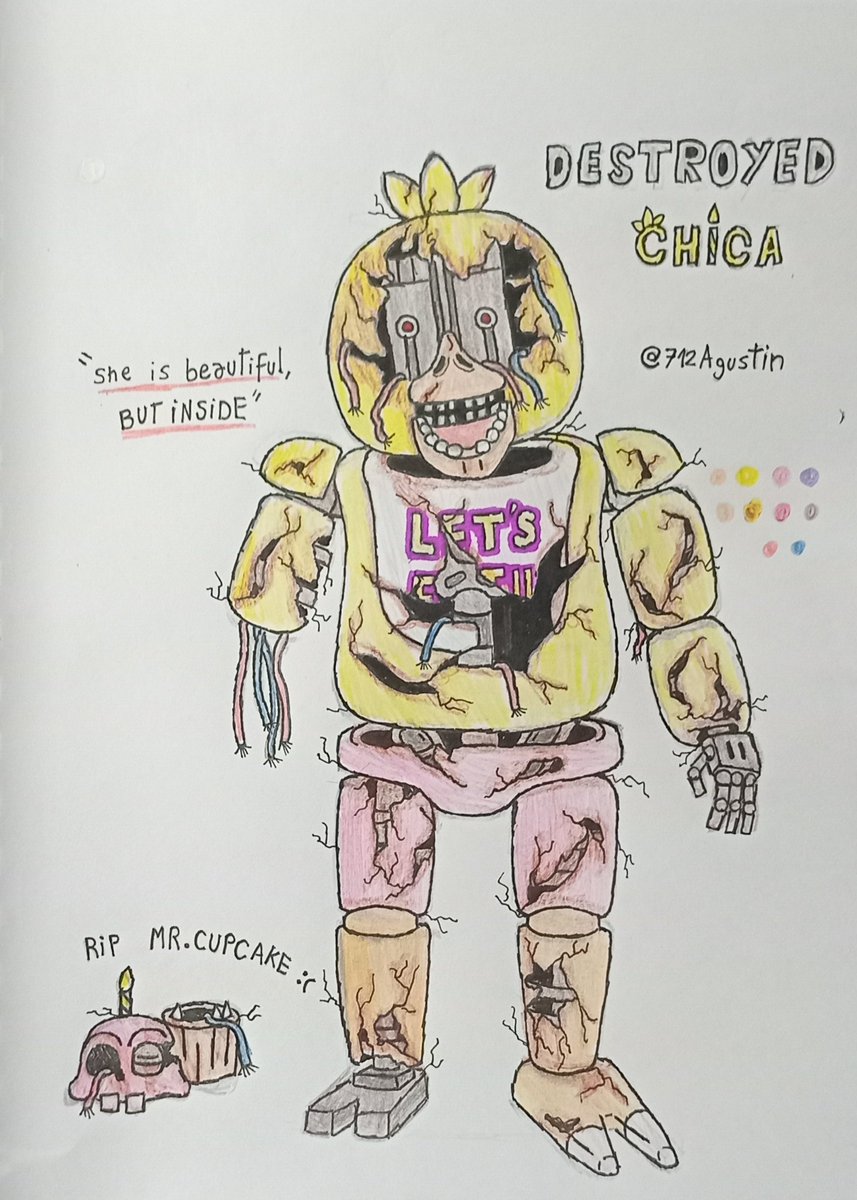 DESTROYED
CHiCA
@712Agustin
"she is beautiful,
BUT iNSiDE"
LET'S
RiP MR.CUPCAKE :(